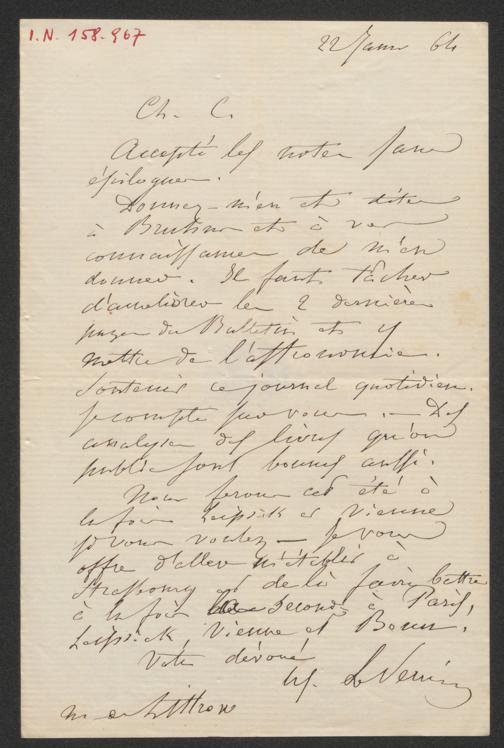 I.N. 158.967
22 Janv 64
Ch. C.
Accepté les notes sans
épiloguer.
Donnez-m'en et dites
à Bruhns et à vos
connaissances de m'en
donner. Il faut tâcher
d'améliorer les 2 dernières
pages du Bulletin et y
mettre de l'astronomie.
Soutenir ce journal quotidien.
Je compte sur vous. — Des
analyses des livres qu'on
publie sont bonnes aussi.
Nous ferons cet été à
la fois Leipsick et Vienne
si vous voulez — Je vous
offre d'aller m'établir à
Strasbourg et de là faire battre
à la fois la seconde à Paris,
Leipsick, Vienne et Bonn.
Votre dévoué
Le Verrier
M. de Littrow